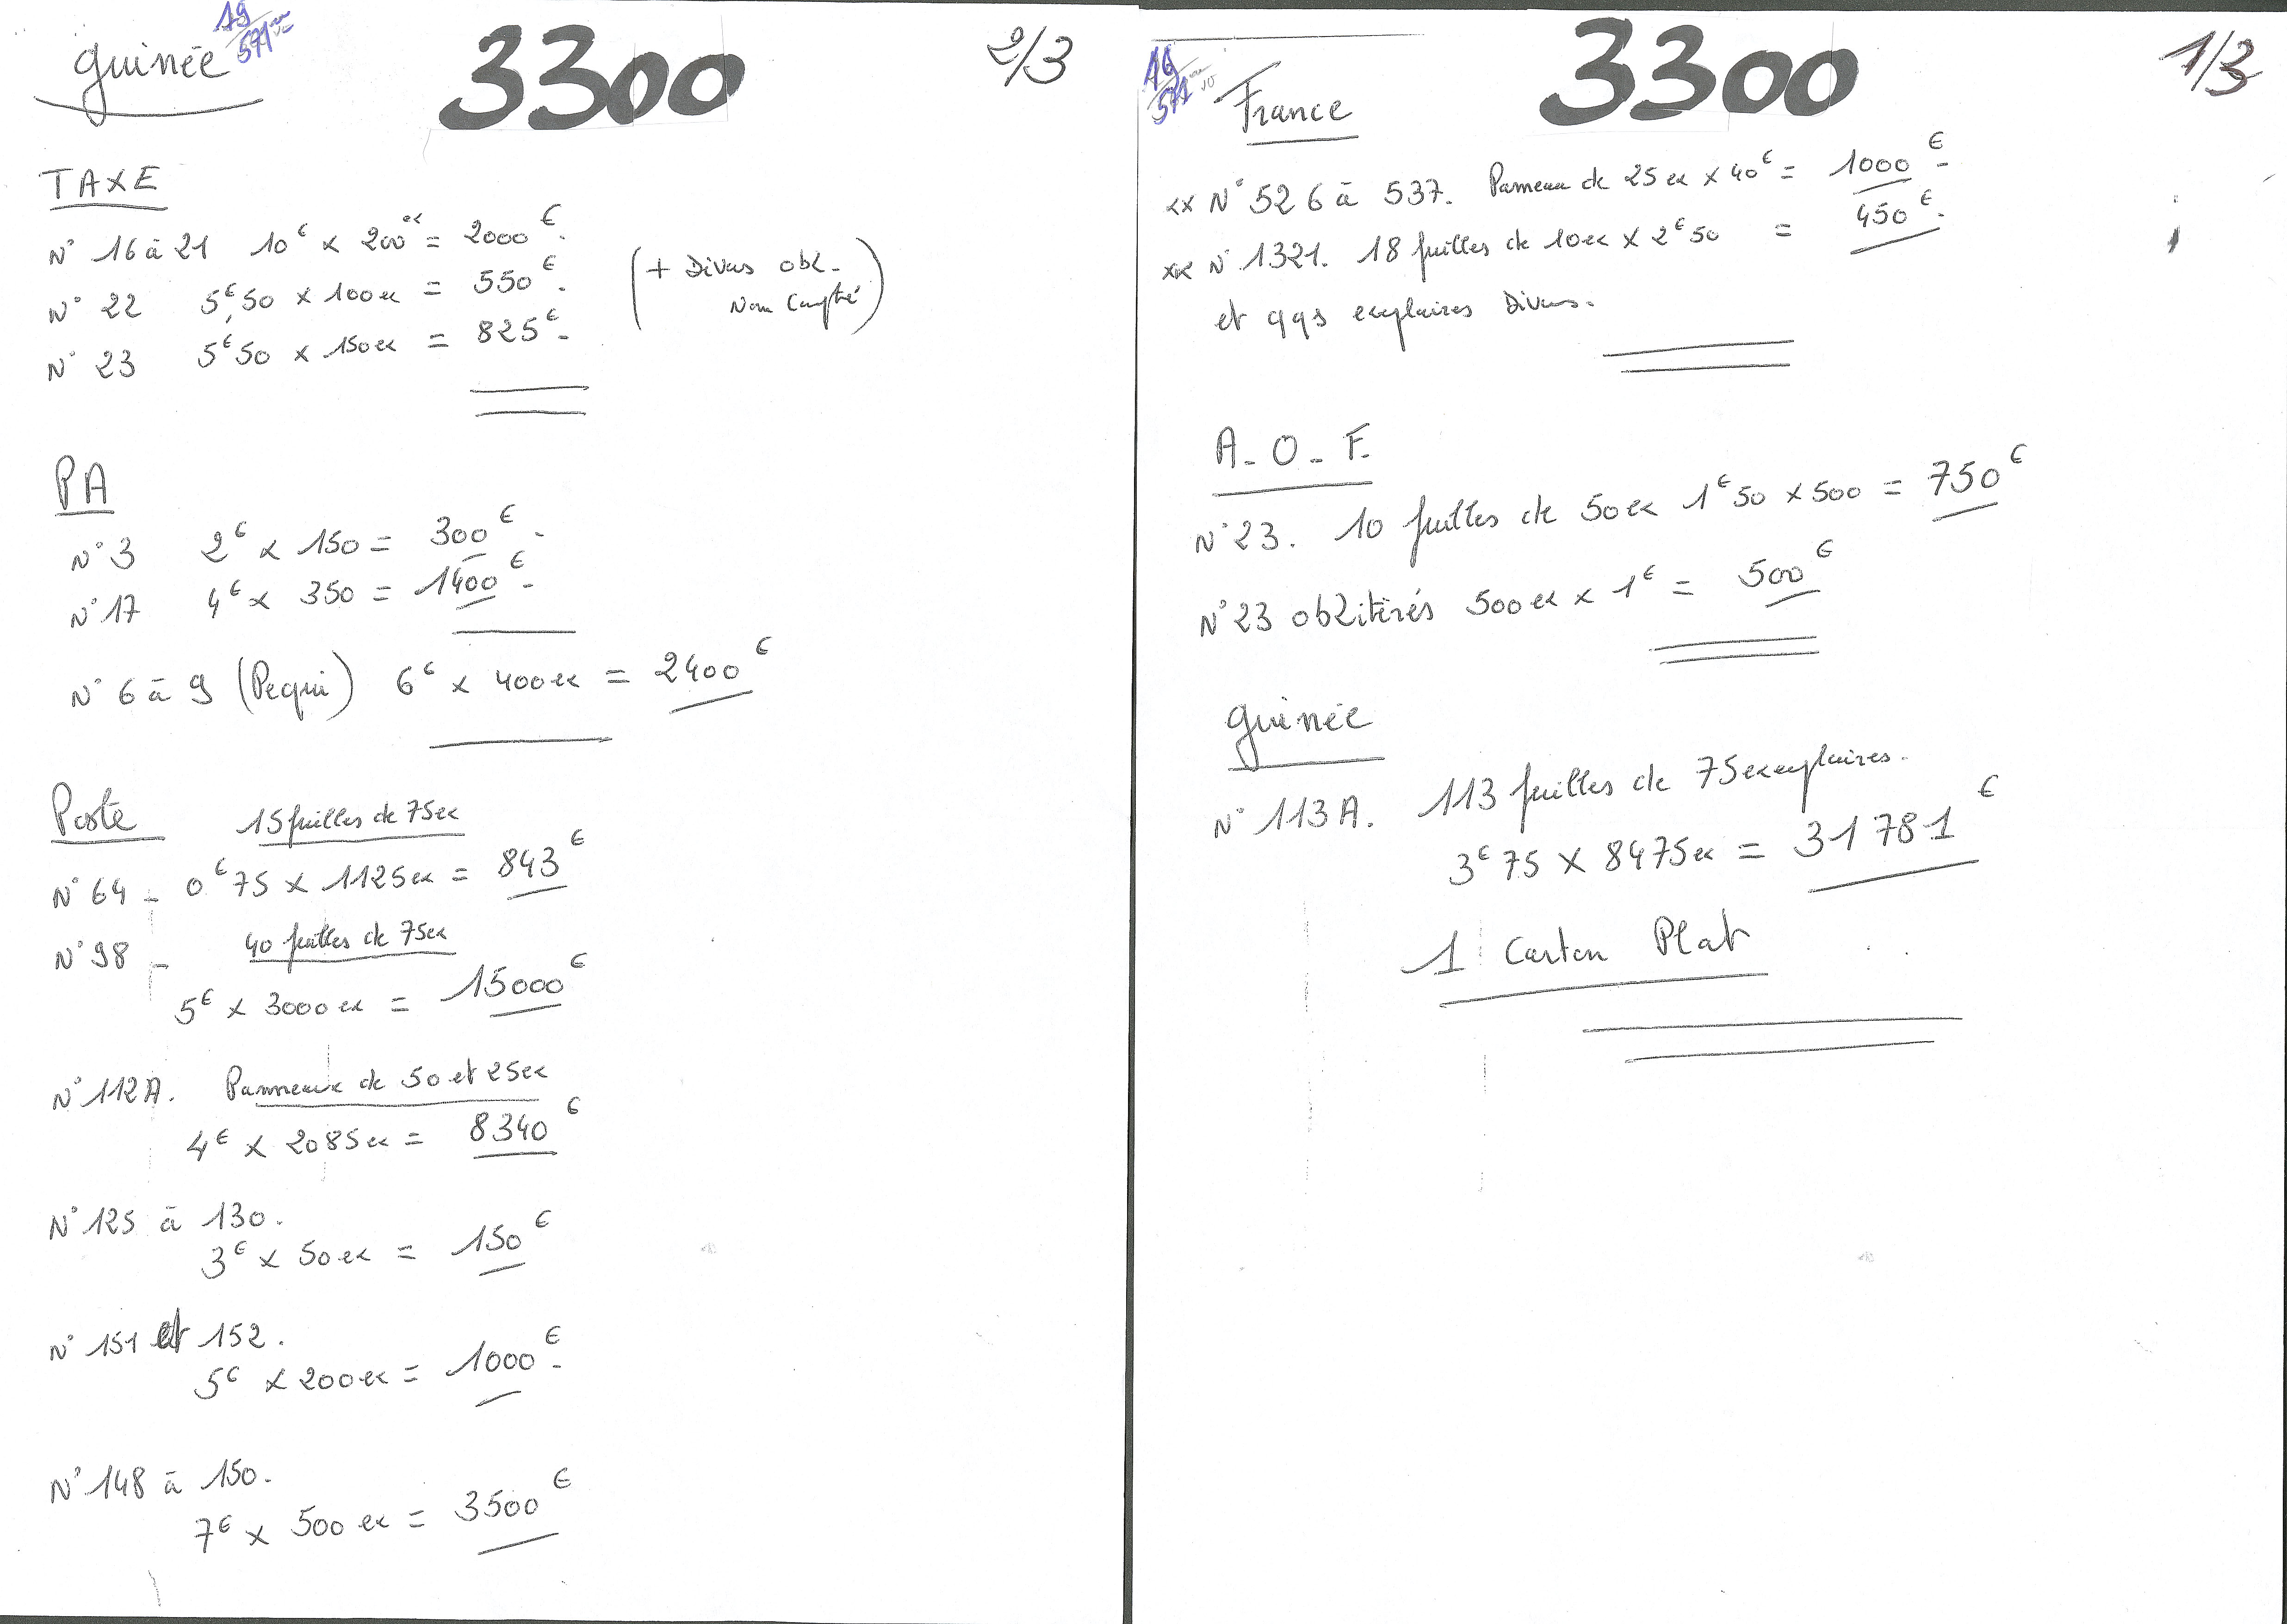 Guinée
19
571
3300
2/3
TAXE
N° 16 à 21 10€ x 200ex = 2000€.
N° 22 5€,50 x 100ex = 550€.
N° 23 5€50 x 150ex = 825€.
(+ Divers obl.
Non Compté)
PA
N° 3 2€ x 150 = 300€.
N° 17 4€ x 350 = 1400€.
N° 6 à 9 (Pequi) 6€ x 400ex = 2400€
Poste 15 feuilles de 75ex
N° 64 - 0€75 x 1125ex = 843€
N° 98 - 40 feuilles de 75ex
5€ x 3000ex = 15000€
N° 112A. Panneaux de 50 et 25ex
4€ x 2085ex = 8340€
N° 125 à 130.
3€ x 50ex = 150€
N° 151 et 152.
5€ x 200ex = 1000€.
N° 148 à 150.
7€ x 500ex = 3500€
19
571
France
3300
1/3
xx N° 526 à 537. Panneau de 25ex x 40€ = 1000€.
xx N° 1321. 18 feuilles de 10ex x 2€50 = 450€.
et qqs exemplaires Divers.
A-O-F.
N° 23. 10 feuilles de 50ex 1€50 x 500 = 750€
N° 23 oblitérés 500ex x 1€ = 500€
Guinée
N° 113A. 113 feuilles de 75 exemplaires.
3€75 x 8475ex = 31781€
1 Carton Plat